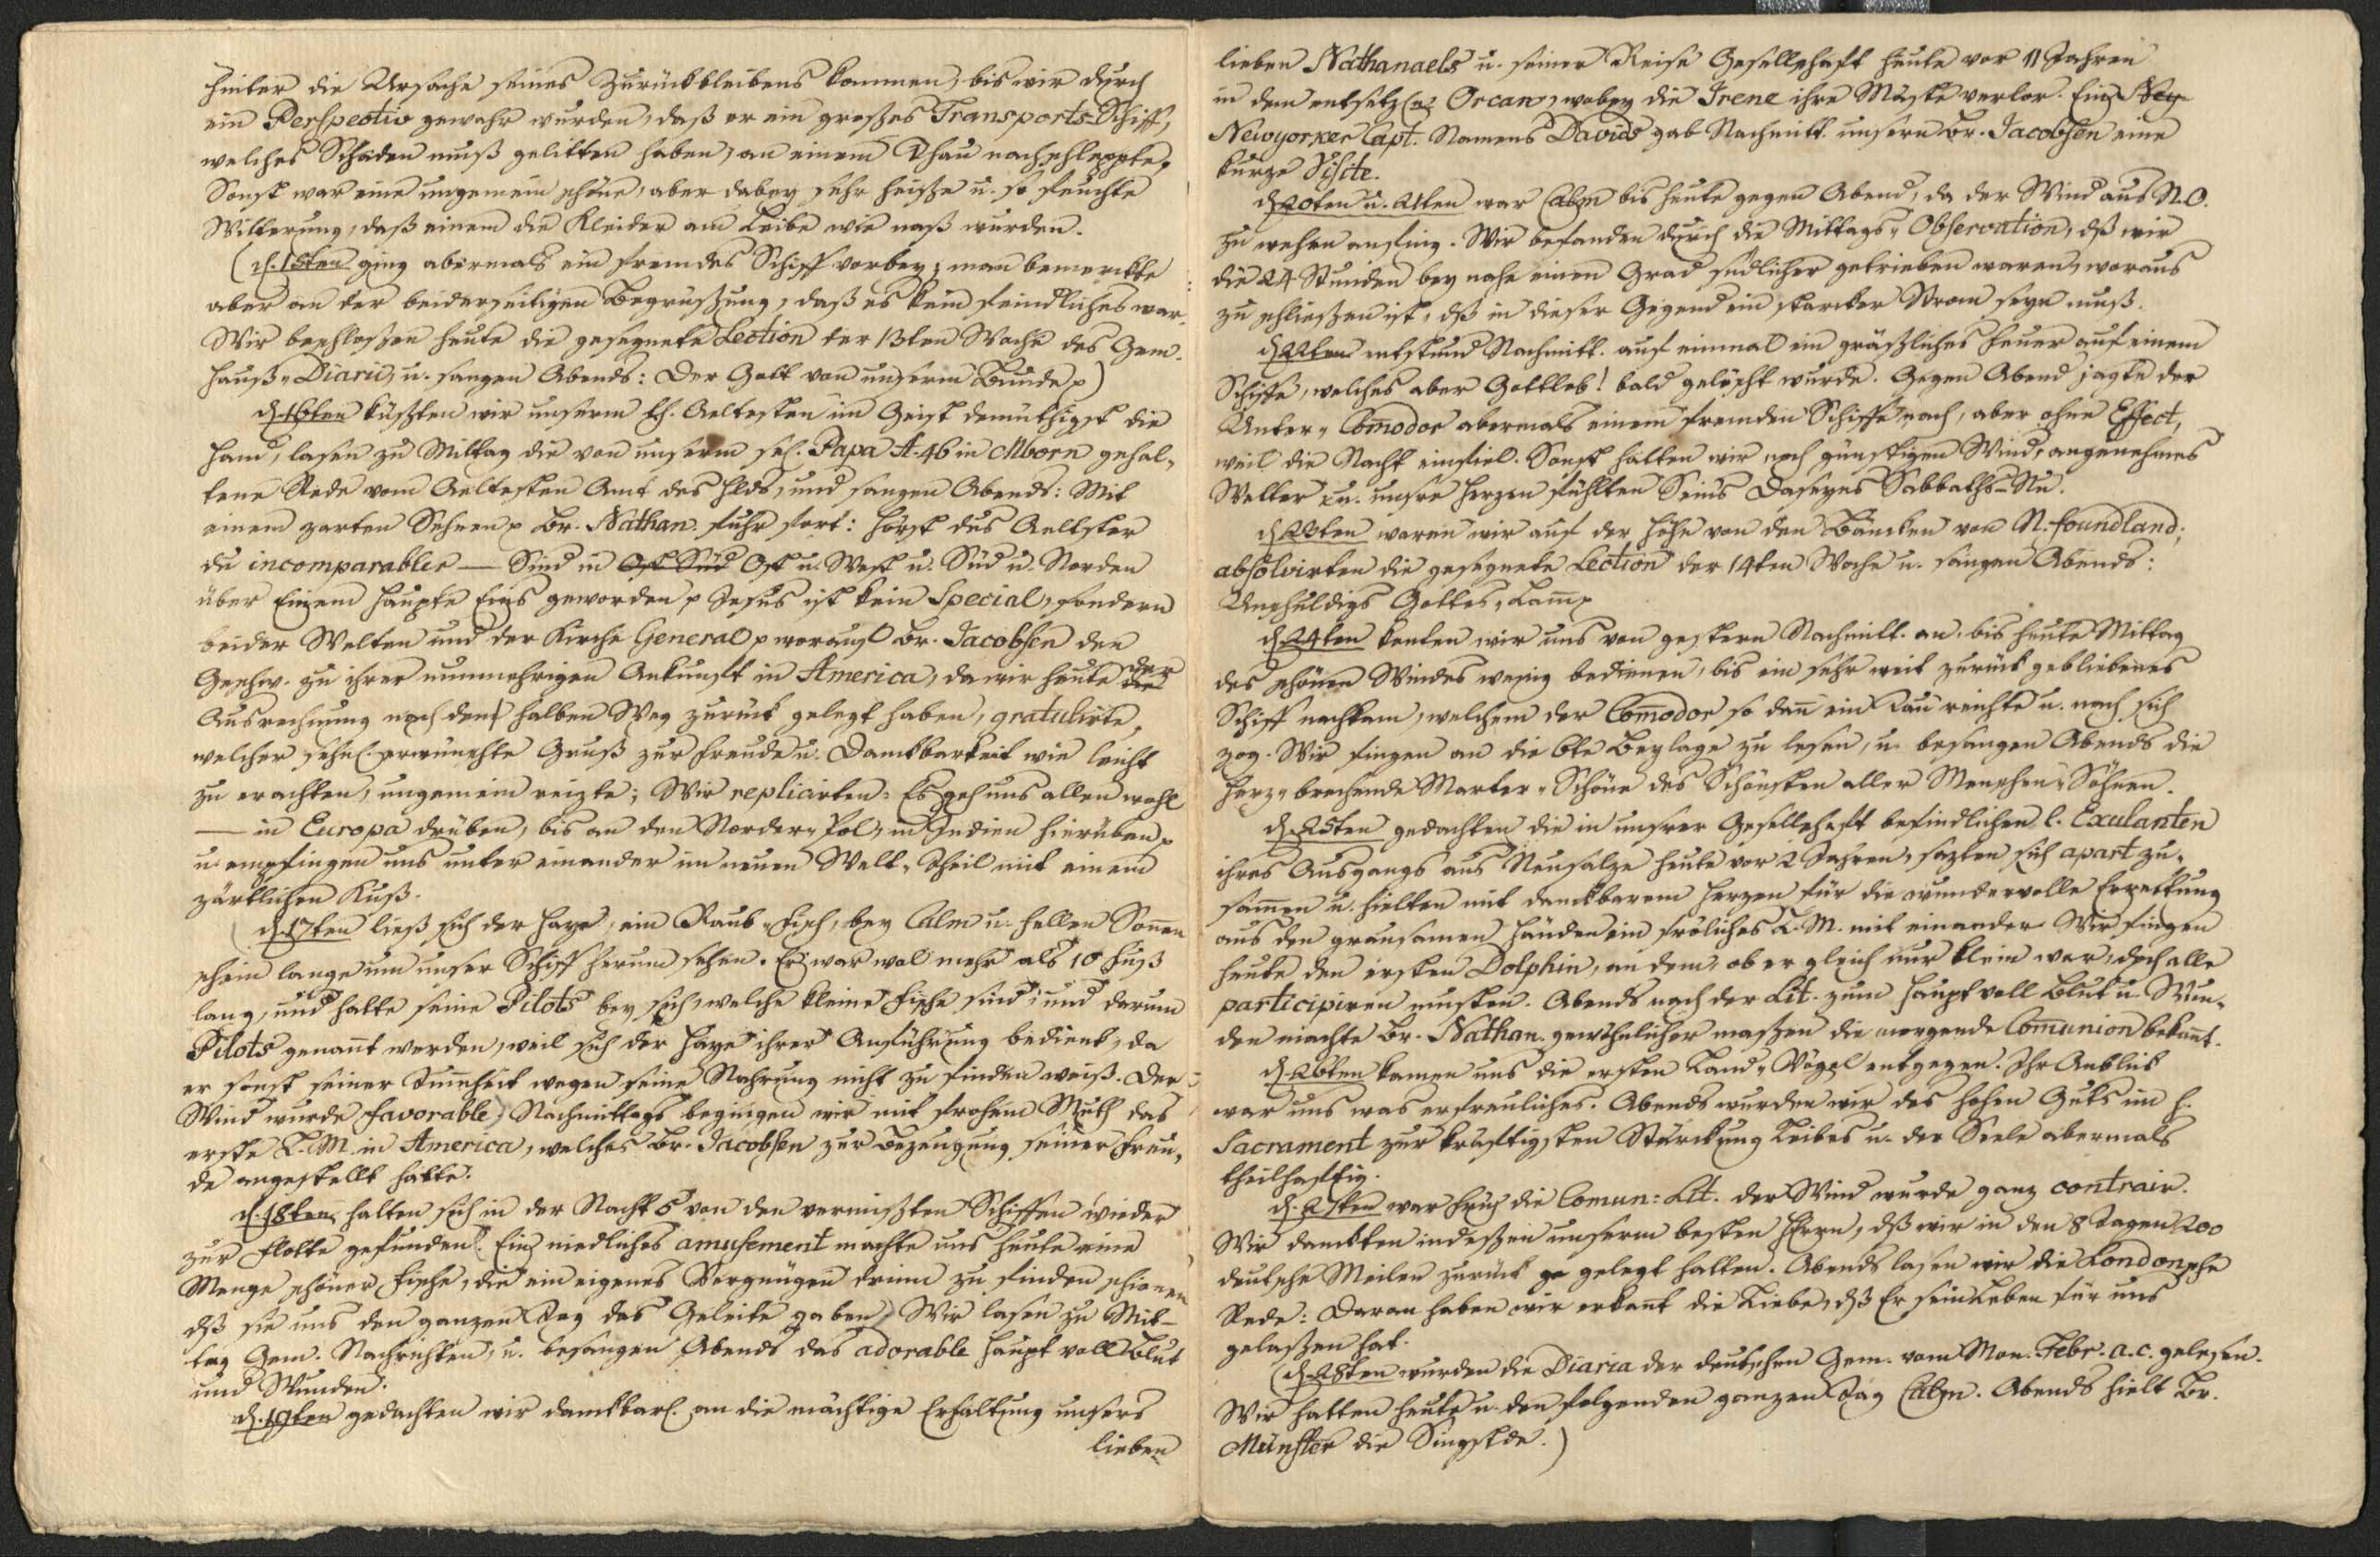 hinter die Ursache seines Zurückbleibens kommen, bis wir durch
ein Perspectiv gewahr wurden, daß er ein großes Transports-Schiff,
welches Schaden muß gelitten haben, an einem Thau nachschleppte.
Sonst war eine ungemein schöne, aber dabey sehr heiße u. so feuchte
Witterung, daß einem die Kleider am Leibe wie naß wurden.
(d. 15ten ging abermals ein fremdes Schiff vorbey; man bemerckte
aber an der beiderseitigen Begrüßung, daß es kein feindliches war.
Wir beschloßen heute die gesegnete Lection der 13ten Woche des Gem.
Hauß-Diarii, u. sangen Abends: Der Gott von unserm Bunde p)
d. 16ten küßten wir unserm Ch. Aeltesten im Geist demüthigst die
Hand, lasen zu Mittag die von unserm sel. Papa A. 46 in Mborn gehal-
tene Rede vom Aeltesten Amt des Hlds, und sangen Abends: Mit
einem zarten Sehnen p Br. Nathan. fuhr fort: Hörst dus Aeltster
du incomparabler — Sind in Ost Süd Ost u. West u. Süd u. Norden
über Einem Haupte Eins geworden p Jesus ist kein Special, sondern
beider Welten und der Kirche General p worauf Br. Jacobsen den
Geschw. zu ihrer nunmehrigen Ankunft in America, da wir heute der die
Ausrechnung nach den halben Weg zurück gelegt haben, gratulirte,
welcher sehnl. erwünschte Gruß zur Freude u. Danckbarkeit wie leicht
zu erachten, ungemein reizte; Wir replicirten: Es geh uns allen wohl
— in Europa drüben, bis an den Norder-Pol, in Indien hierüben p
u. empfingen uns unter einander im neuen Welt-Theil mit einem
zärtlichen Kuß.
d. 17ten ließ sich der Haye, ein Raub-Fisch, bey Calm u. hellen Sonnen
schein lange um unser Schiff herum sehen. Er war wol mehr als 10 Fuß
lang, und hatte seine Pilots bey sich, welche kleine Fische sind, und darum
Pilots genannt werden, weil sich der Haye ihrer Anführung bedient, da
er sonst seiner Dumheit wegen seine Nahrung nicht zu finden weiß. Der
Wind wurde favorable, Nachmittags begingen wir mit frohem Muth das
erste L. M. in America, welches Br. Jacobsen zur Bezeugung seiner Freu-
de angestellt hatte.
d. 18ten hatten sich in der Nacht 5 von den vermißten Schiffen wieder
zur Flotte gefunden. Ein niedliches amusement machte uns heute eine
Menge schöner Fische, die ein eigenes Vergnügen drinn zu finden schienen
dß sie uns den ganzen Tag das Geleite gaben, Wir lasen zu Mit-
tag Gem. Nachrichten, u. besangen Abends das adorable Haupt voll Blut
und Wunden.
d. 19ten gedachten wir danckbarl. an die mächtige Erhaltung unsers
lieben
lieben Nathanaels u. seiner Reise Gesellschaft heute vor 11 Jahren
in dem entsetzl. Orcan, wobey die Irene ihre Maste verlor. Ein Ney
Newyorker Capt. Namens Davids gab Nachmitt. unserm Br. Jacobsen eine
kurze Visite.
d. 20ten u. 21ten war Calm bis heute gegen Abend, da der Wind aus N. O.
zu wehen anfing. Wir befanden durch die Mittags-Observation, dß wir
die 24 Stunden bey nahe einen Grad südlicher getrieben waren, woraus
zu schließen ist, dß in dieser Gegend ein starcker Strom seyn muß.
d. 22ten entstund Nachmitt. auf einmal ein gräßliches Feuer auf einem
Schiffe, welches aber Gottlob! bald gelöscht wurde. Gegen Abend jagte der
Unter-Comodor abermals einem fremden Schiffe nach, aber ohne Effect,
weil die Nacht einfiel. Sonst hatten wir noch günstigen Wind, angenehmes
Wetter u. unsre Herzen fühlten Seins Daseyns Sabbaths-Nu.
d. 23ten waren wir auf der Höhe von den Bäncken von N. foundland;
absolvirten die gesegnete Lection der 14ten Woche u. sangen Abends:
Unschuldigs Gottes-Lamm p
d. 24ten konten wir uns von gestern Nachmitt. an bis heute Mittag
des schönen Windes wenig bedienen, bis ein sehr weit zurück gebliebenes
Schiff nachkam, welchem der Comodor so dan ein Tau reichte u. nach sich
zog. Wir fingen an die 6te Beylage zu lesen, u. besangen Abends die
Herz-brechende Marter-Schöne des Schönsten aller Menschen-Söhnen.
d. 25ten gedachten die in unsrer Gesellschaft befindlichen l. Exulanten
ihres Ausgangs aus Neusalze heute vor 2 Jahren, sezten sich apart zu-
samen u. hielten mit danckbarem Herzen für die wundervolle Errettung
aus den grausamen Händen ein fröliches L. M. mit einander. Wir fingen
heute den ersten Dolphin, an dem, ob er gleich nur klein war, doch alle
participiren musten. Abends nach der Lit. zum Haupt voll Blut u. Wun-
den machte Br. Nathan. gewöhnlicher maßen die morgende Comunion bekant.
d. 26ten kamen uns die ersten Land-Vögel entgegen. Ihr Anblick
war uns was erfreuliches. Abends wurden wir des hohen Guts im h.
Sacrament zur kräftigsten Stärckung Leibes u. der Seele abermals
theilhaftig.
d. 27ten war früh die Comun: Lit. der Wind wurde ganz contrair.
Wir danckten indeßen unserm besten Herrn, dß wir in den 8 Tagen 200
deutsche Meilen zurück ge gelegt hatten. Abends lasen wir die Londonsche
Rede: Daran haben wir erkant die Liebe, dß Er sein Leben für uns
gelaßen hat.
(d. 28ten wurden die Diaria der deutschen Gem. vom Mon. Febr. a. c. gelesen.
Wir hatten heute u. den folgenden ganzen Tag Calm. Abends hielt Br.
Münster die Singstde.)